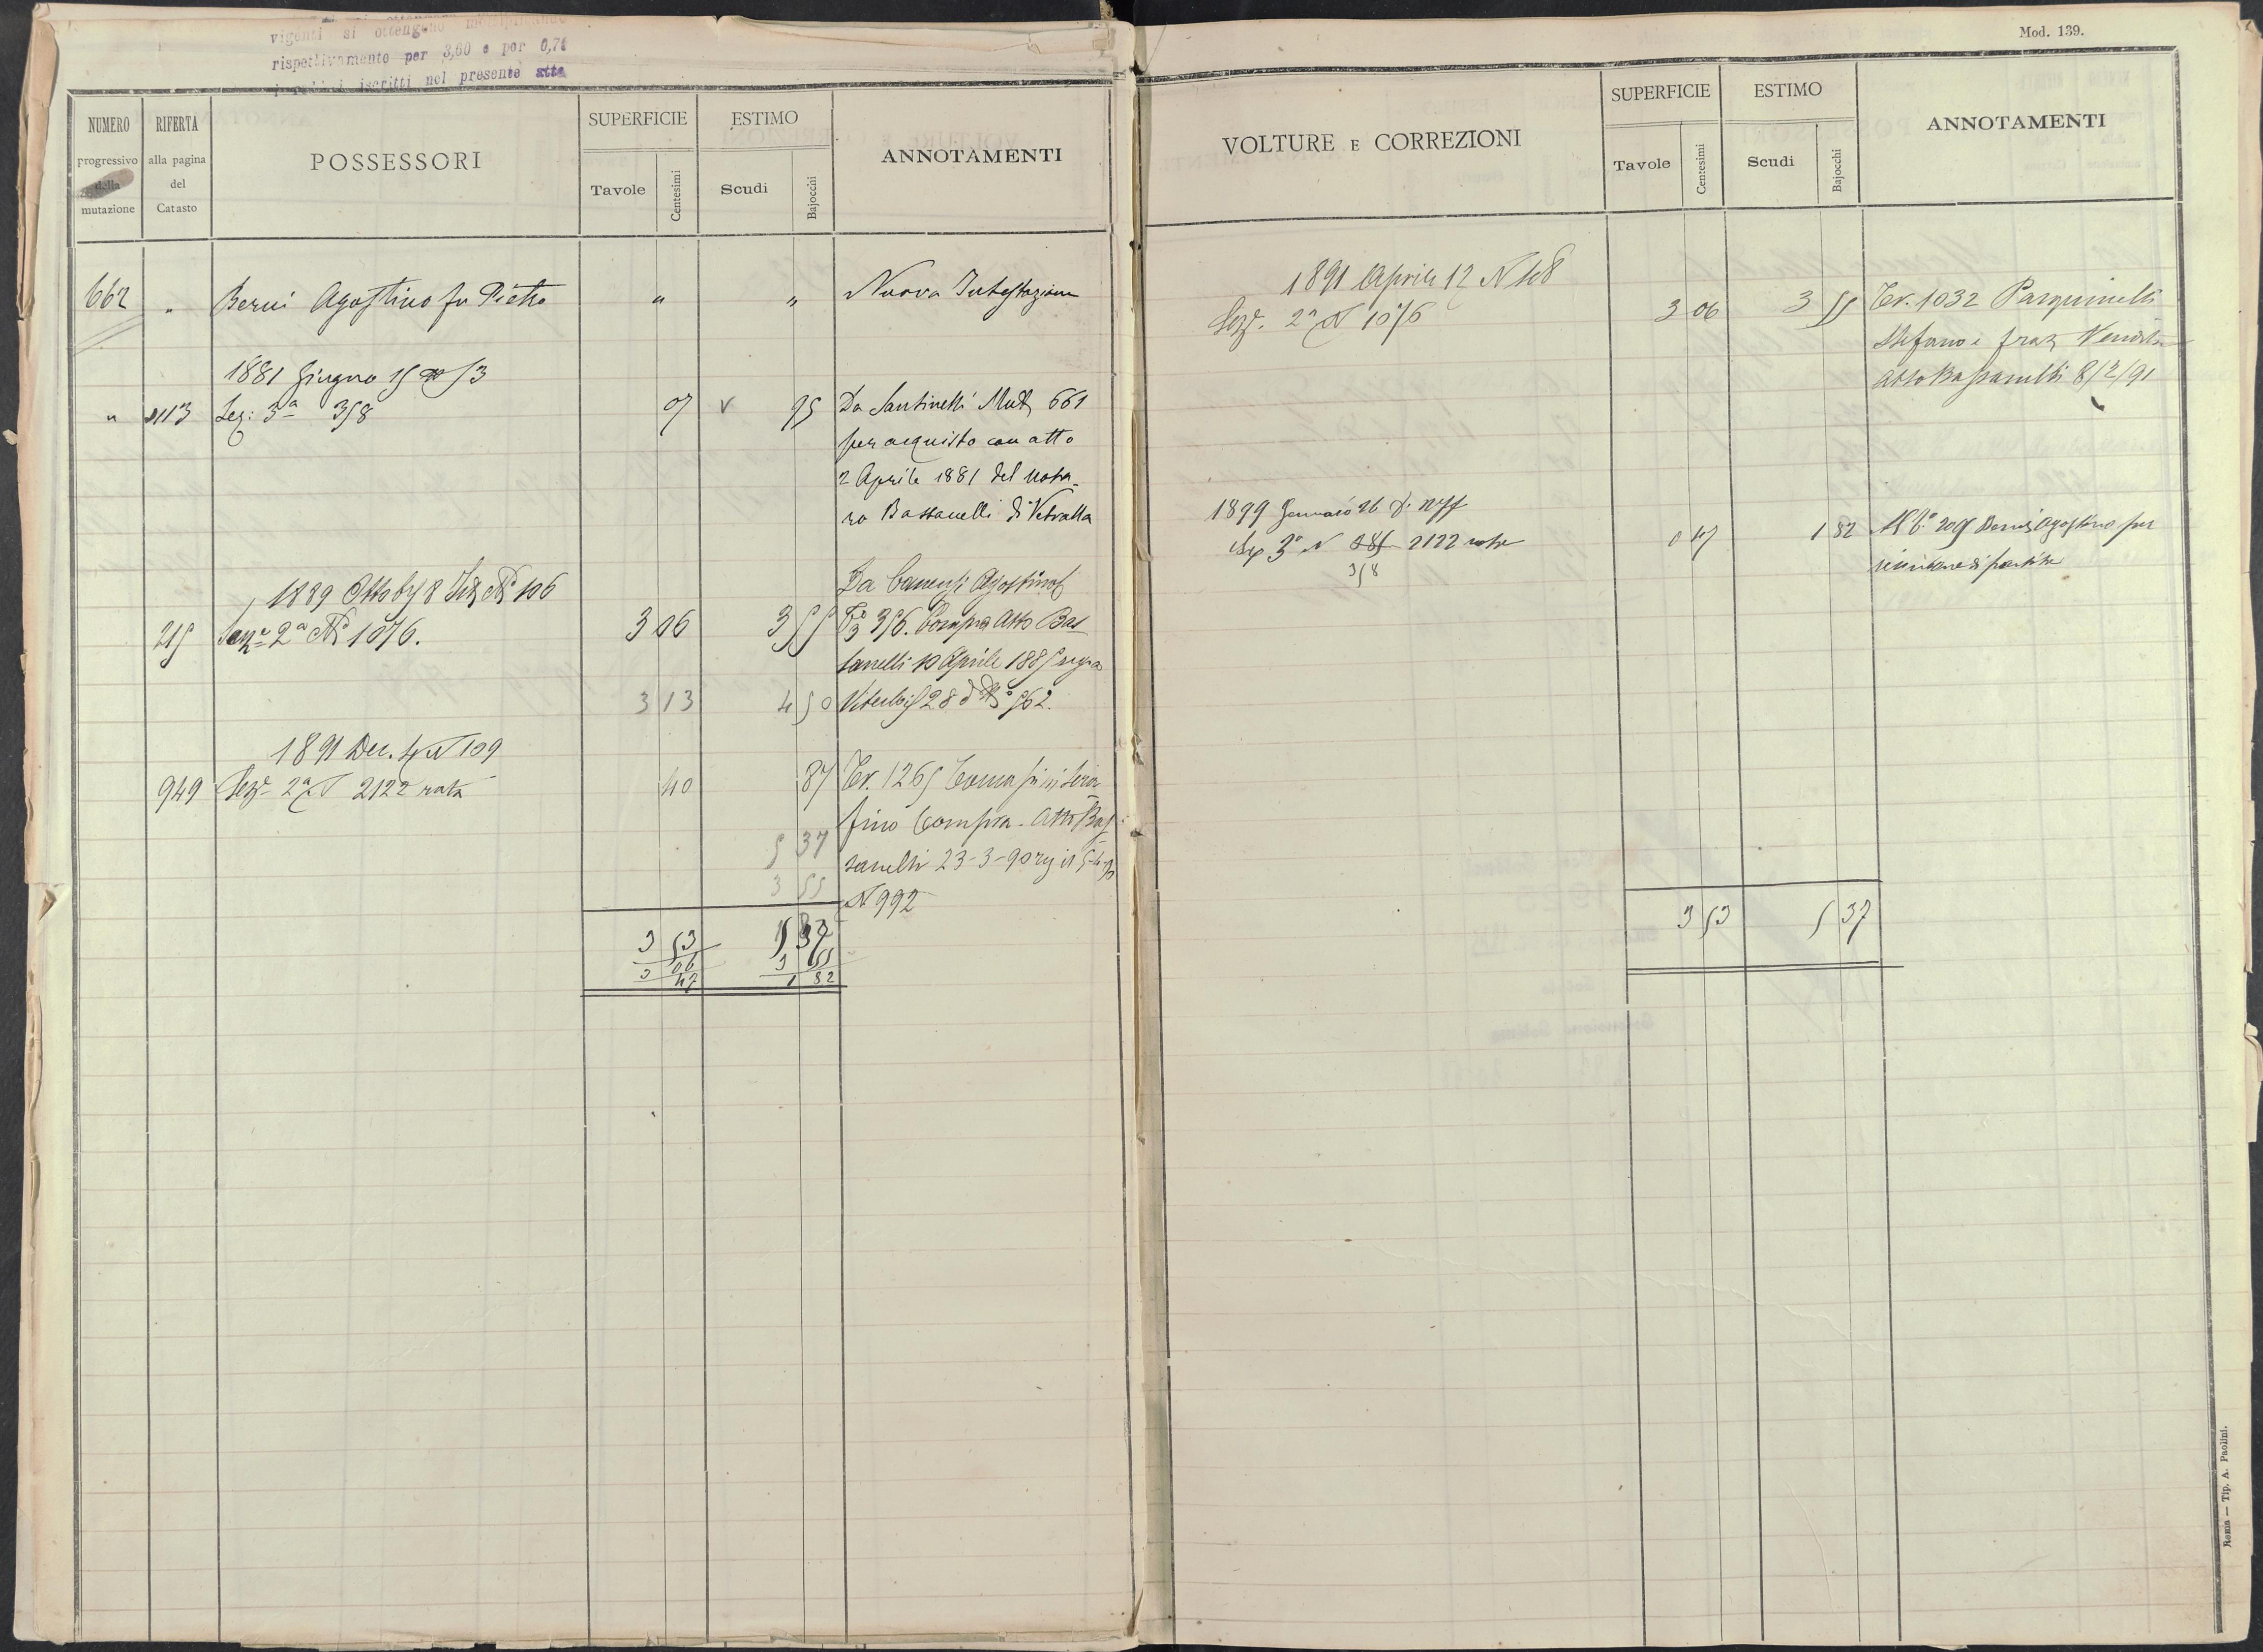 vigenti si ottengono
rispettivamente per 3,60 e per 0,71
iscritti nel presente atto
NUMERO
progressivo
della
mutazione
RIFERTA
alla pagina
del
Catasto
POSSESSORI
SUPERFICIE
Tavole
Centesimi
ESTIMO
Scudi
Bajocchi
ANNOTAMENTI
662 " Berni Agostino fu Pietro " " Nuova Intestazione
1881 Giugno 15 53
" Sez: 3a 358 07 95 Da Santinelli Mut 661
per acquisto con atto
2 Aprile 1881 del nota-
ro Bassanelli di Vetralla
1889 8 106 Da Agostino
215 Sezne 2a No 1076. 3 06 3 55 356. Compra Atto Bas
sanelli 10 Aprile 1885
3 13 4 50 28 562.
1891 Dec. 4 N 109
949 Seze 2a N 2122 rata 40 87 Tr. 1265
fino Compra. Atto Bas
5 37
sanelli 23-3-90
3 55
N 992
3 53 5 37
3 06 3 55
47 1 82
Mod. 139.
VOLTURE E CORREZIONI
SUPERFICIE
Tavole
Centesimi
ESTIMO
Scudi
Bajocchi
ANNOTAMENTI
1891 Aprile 12 N 48
Seze. 2a N 1076 3 06 3 55 Tr. 1032 Pasquinelli
Stefano e Vendita
Atto Bassanelli 8/2/91
1899 Gennaio 26
Sez 3a N 2122 rata 0 47 1 82 Berni Agostino per
358
di partite
3 53 5 37
Roma — Tip. A. Paolini.